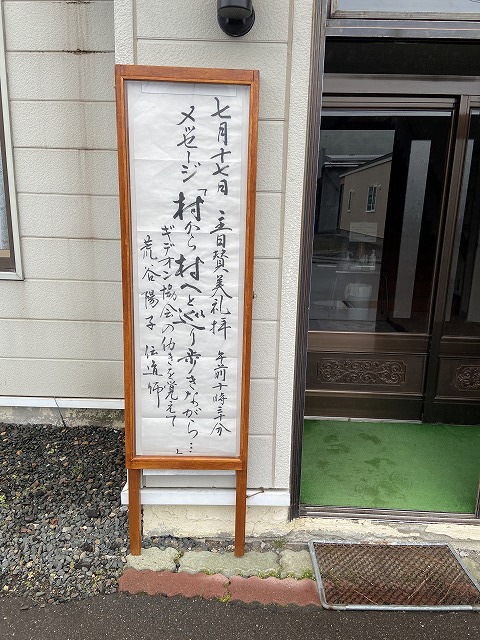 七月十七日 主日賛美礼拝 午前十時三十分
メッセージ「村から村へと巡り歩きながら…」
ギデオン協会の働きを覚えて
荒谷陽子 伝道師